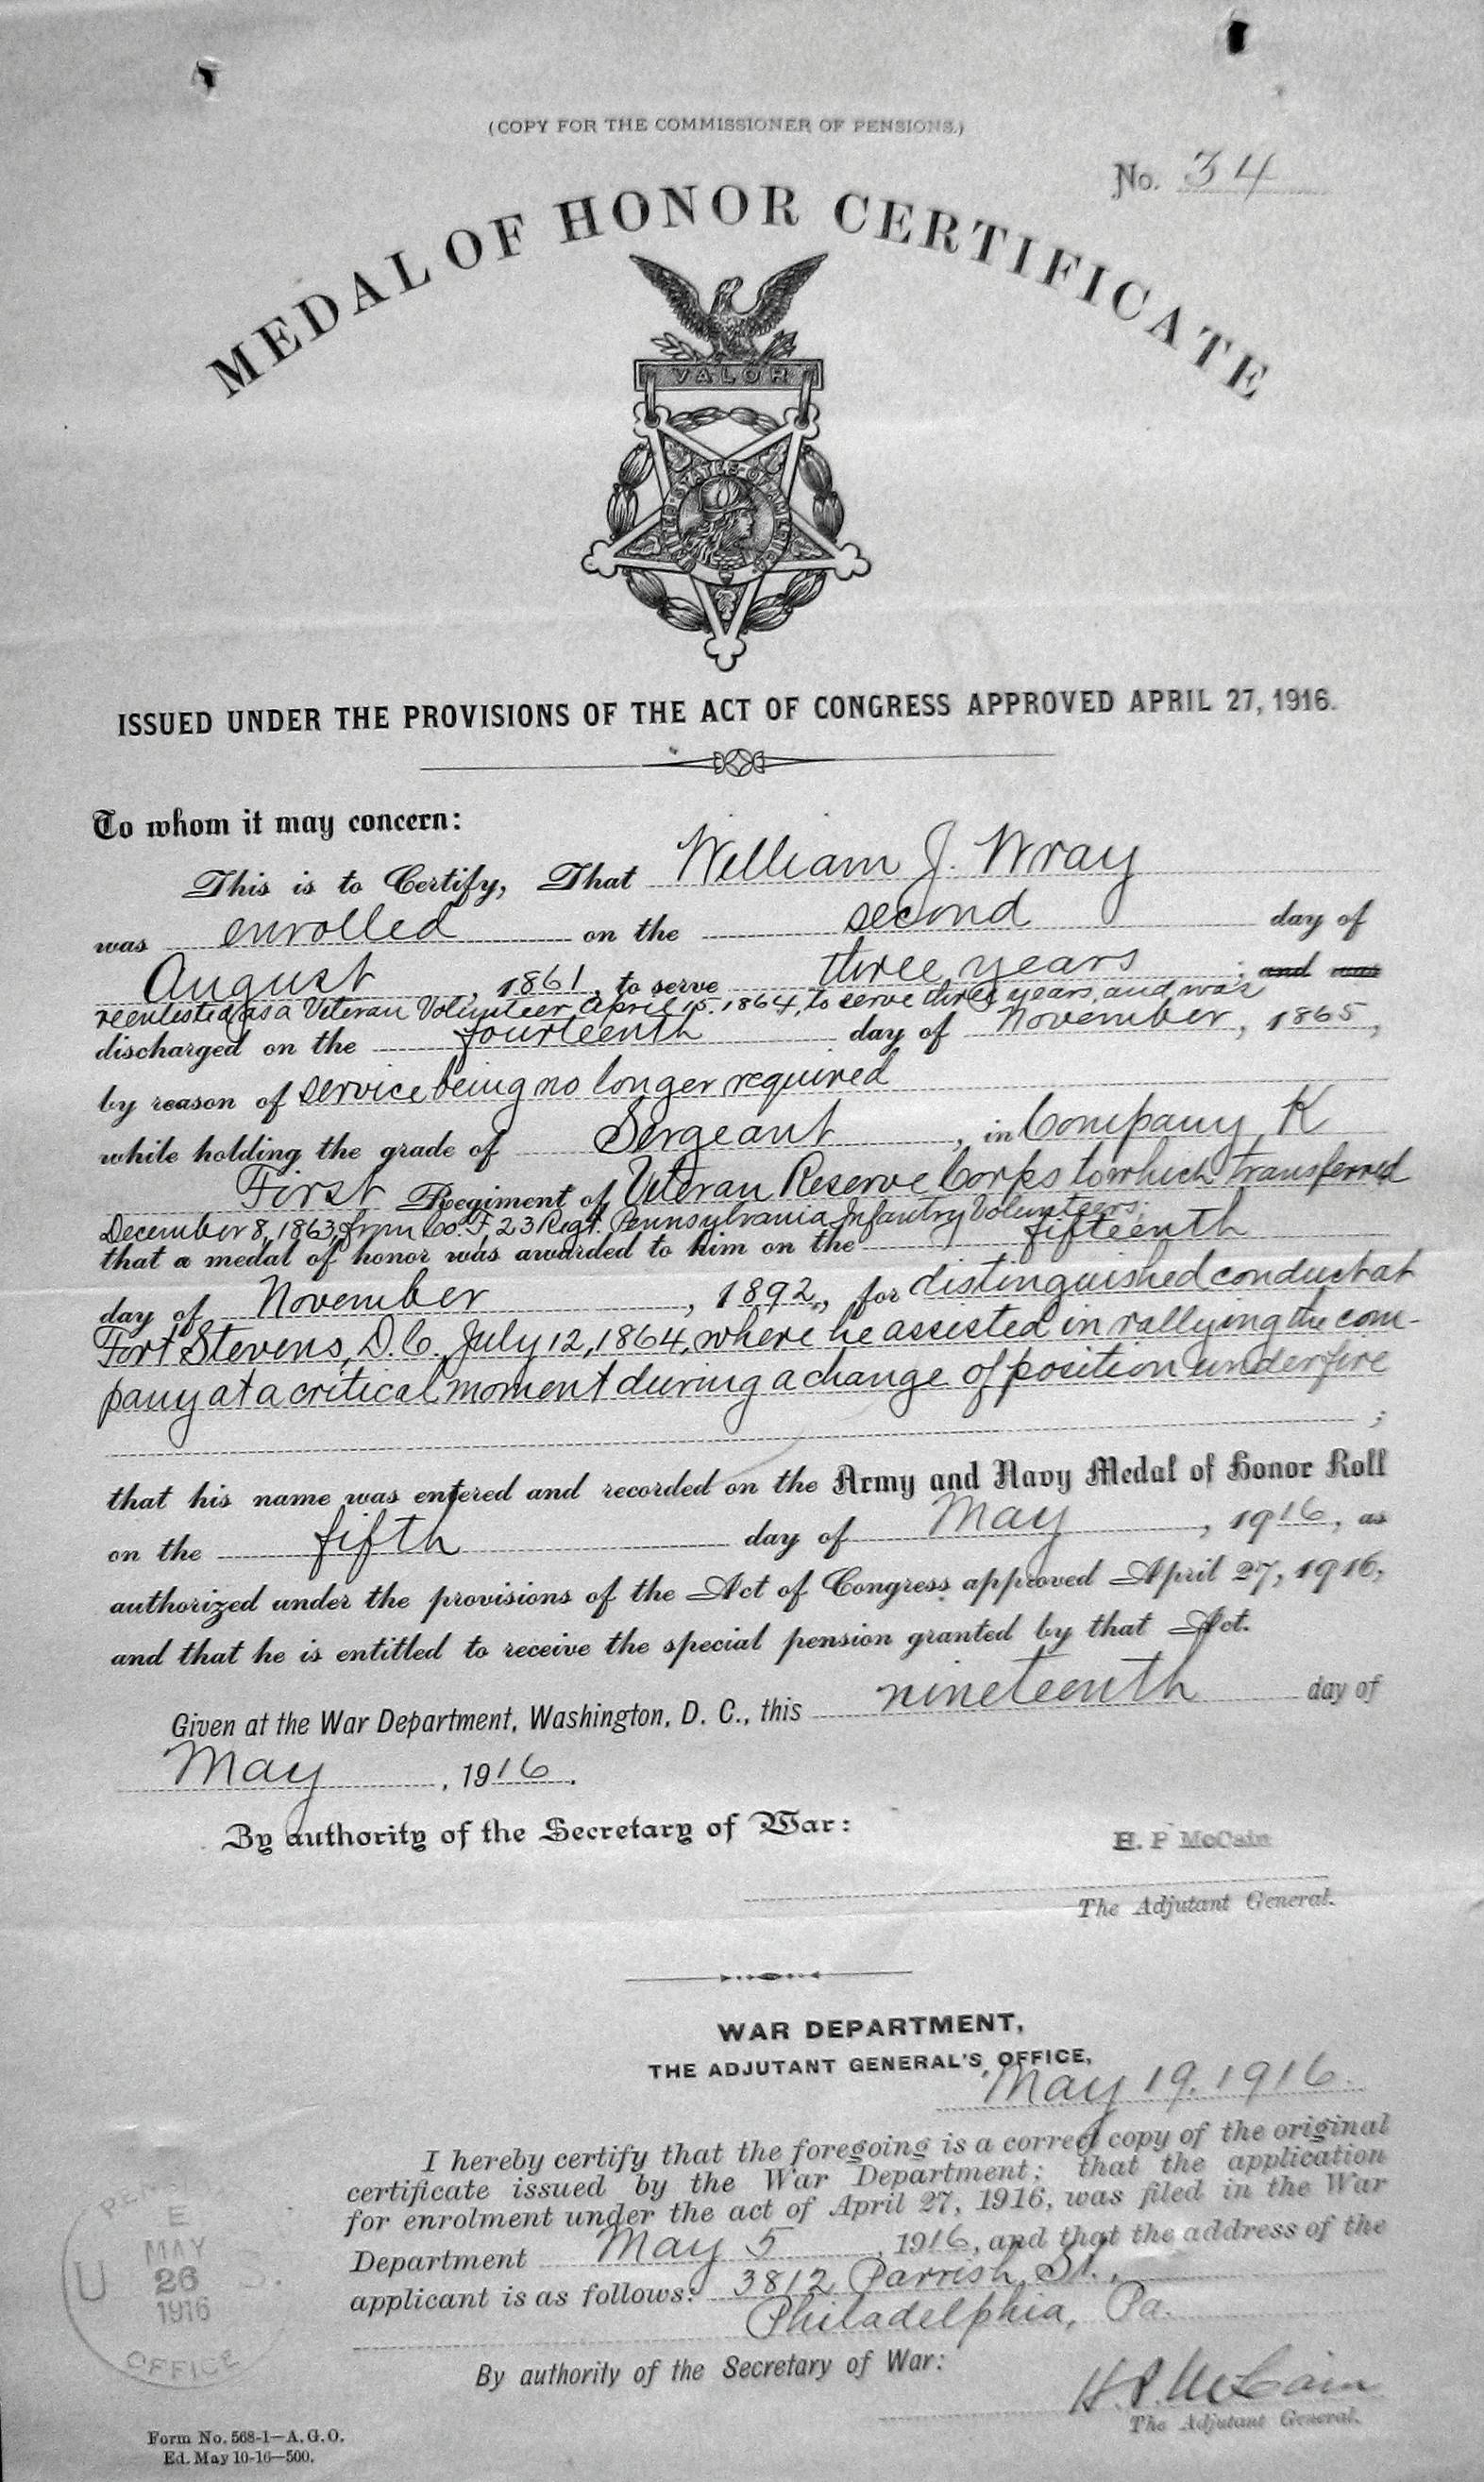 (COPY FOR THE COMMISSIONER OF PENSIONS.)
No. 34
MEDAL OF HONOR CERTIFICATE
VALOR
UNITED STATES OF AMERICA
ISSUED UNDER THE PROVISIONS OF THE ACT OF CONGRESS APPROVED APRIL 27, 1916.
To whom it may concern:
This is to Certify, That William J. Wray
was enrolled on the second day of
August, 1861, to serve three years; and was
reenlisted as a Veteran Volunteer April 15, 1864, to serve three years, and was
discharged on the fourteenth day of November, 1865,
by reason of service being no longer required
while holding the grade of Sergeant, in Company K
First Regiment of Veteran Reserve Corps to which transferred
December 8, 1863, from Co. F, 23 Regt. Pennsylvania Infantry Volunteers;
that a medal of honor was awarded to him on the fifteenth
day of November, 1892, for distinguished conduct at
Fort Stevens, D.C., July 12, 1864, where he assisted in rallying the com-
pany at a critical moment during a change of position under fire
;
that his name was entered and recorded on the Army and Navy Medal of Honor Roll
on the fifth day of May, 1916, as
authorized under the provisions of the Act of Congress approved April 27, 1916,
and that he is entitled to receive the special pension granted by that Act.
Given at the War Department, Washington, D. C., this nineteenth day of
May, 1916.
By authority of the Secretary of War:
H. P McCain
The Adjutant General.
WAR DEPARTMENT,
THE ADJUTANT GENERAL'S OFFICE,
May 19, 1916.
I hereby certify that the foregoing is a correct copy of the original
certificate issued by the War Department; that the application
for enrolment under the act of April 27, 1916, was filed in the War
Department May 5, 1916, and that the address of the
applicant is as follows: 3812 Parrish St.,
Philadelphia, Pa.
By authority of the Secretary of War:
H.P. McCain
The Adjutant General.
E
MAY
U 26 S.
1916
OFFICE
Form No. 568-1—A.G.O.
Ed. May 10-16—500.